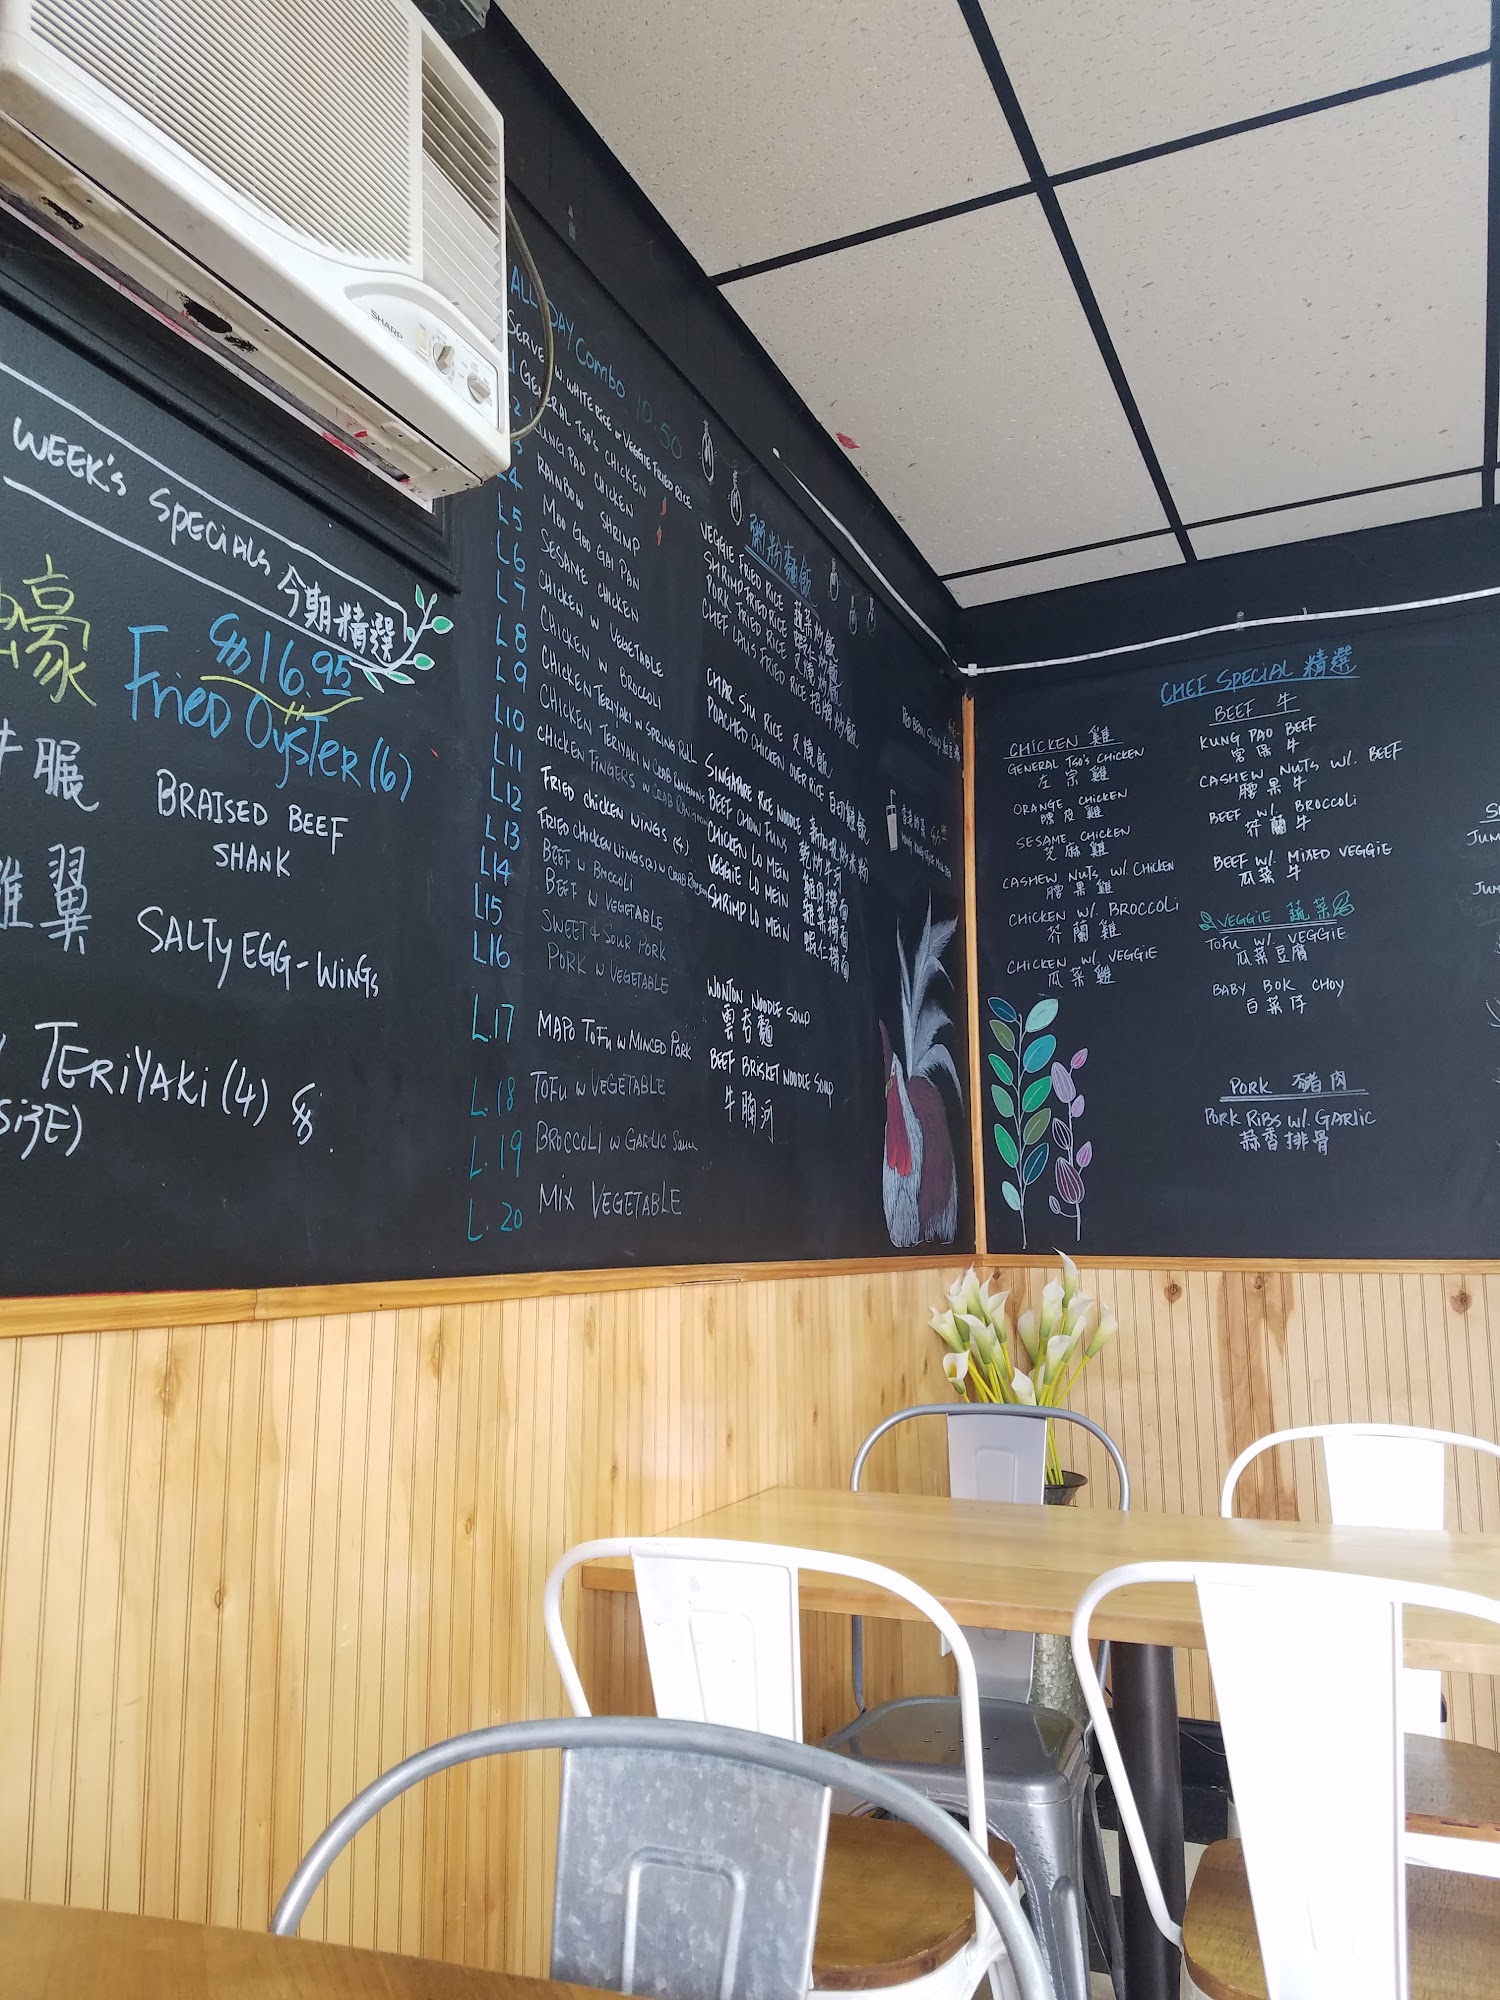 SHARP
WEEK'S SPECIALS 今期精選
蠔
$16.95
FRIED OYSTER (6)
牛腒
BRAISED BEEF
SHANK
雞翼
SALTY EGG-WINGS
TERIYAKI (4)
SIZE)
ALL DAY COMBO 10.50
SERVE W. WHITE RICE OR VEGGIE FRIED RICE
GENERAL TSO'S CHICKEN
KUNG PAO CHICKEN
RAINBOW SHRIMP
MOO GOO GAI PAN
L5 SESAME CHICKEN
L6 CHICKEN W VEGETABLE
L7 CHICKEN W BROCCOLI
L8 CHICKEN TERIYAKI W SPRING ROLL
L9 CHICKEN TERIYAKI W CRAB RANGOONS
L10 CHICKEN FINGERS W CRAB RANGOONS
L11 FRIED CHICKEN WINGS (4)
L12 FRIED CHICKEN WINGS(2) W CRAB RANGOON
L13 BEEF W BROCCOLI
L14 BEEF W VEGETABLE
L15 SWEET & SOUR PORK
L16 PORK W VEGETABLE
L.17 MAPO TOFU W MINCED PORK
L.18 TOFU W VEGETABLE
L.19 BROCCOLI W GARLIC SAUCE
L.20 MIX VEGETABLE
粥粉麵飯
VEGGIE FRIED RICE 蔬菜炒飯
SHRIMP FRIED RICE 蝦炒飯
PORK FRIED RICE 叉燒炒飯
CHEF LAM'S FRIED RICE 招牌炒飯
CHAR SIU RICE 叉燒飯
POACHED CHICKEN OVER RICE 白切雞飯
SINGAPORE RICE NOODLE 新加坡炒米粉
BEEF CHOW FUNS 乾炒牛河
CHICKEN LO MEIN 雞肉撈面
VEGGIE LO MEIN 蔬菜撈面
SHRIMP LO MEIN 蝦仁撈面
WONTON NOODLE SOUP
雲吞麵
BEEF BRISKET NOODLE SOUP
牛腩河
RED BEAN SOUP
CHEF SPECIAL 精選
CHICKEN 雞
GENERAL TSO'S CHICKEN
左宗雞
ORANGE CHICKEN
陳皮雞
SESAME CHICKEN
芝麻雞
CASHEW NUTS W/. CHICKEN
腰果雞
CHICKEN W/. BROCCOLI
芥蘭雞
CHICKEN W/. VEGGIE
瓜菜雞
BEEF 牛
KUNG PAO BEEF
宮保牛
CASHEW NUTS W/. BEEF
腰果牛
BEEF W/. BROCCOLI
芥蘭牛
BEEF W/. MIXED VEGGIE
瓜菜牛
VEGGIE 蔬菜
TOFU W/. VEGGIE
瓜菜豆腐
BABY BOK CHOY
白菜仔
PORK 豬肉
PORK RIBS W/. GARLIC
蒜香排骨